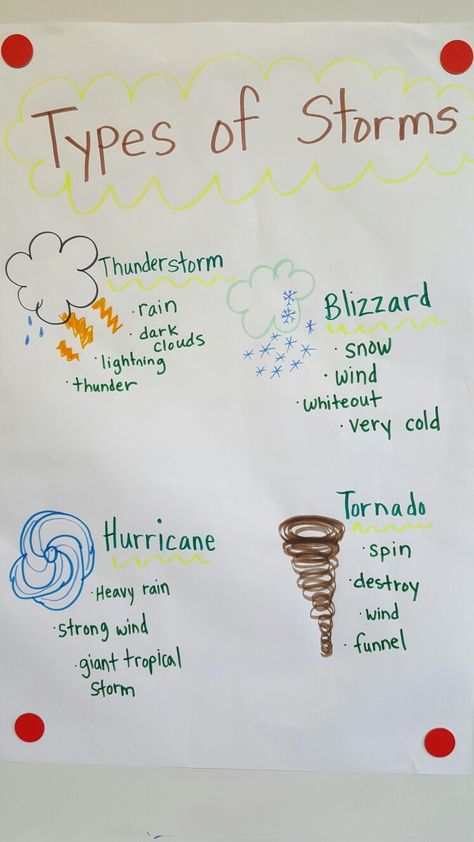 Types of Storms
Thunderstorm
· rain
· dark
clouds
· lightning
· thunder
Blizzard
· snow
· wind
· whiteout
· very cold
Hurricane
· Heavy rain
· strong wind
· giant tropical
storm
Tornado
· spin
· destroy
· wind
· funnel